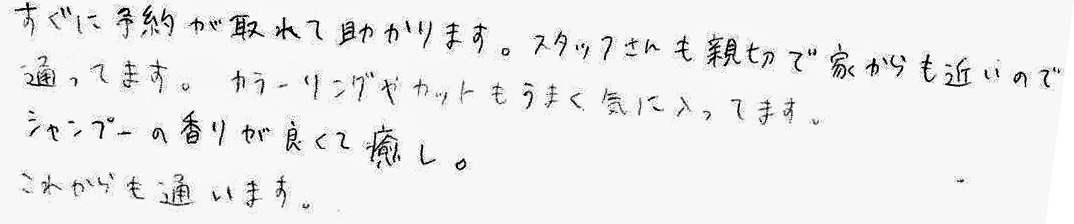 すぐに予約が取れて助かります。スタッフさんも親切で家からも近いので
通ってます。カラーリングやカットもうまく気に入ってます。
シャンプーの香りが良くて癒し。
これからも通います。